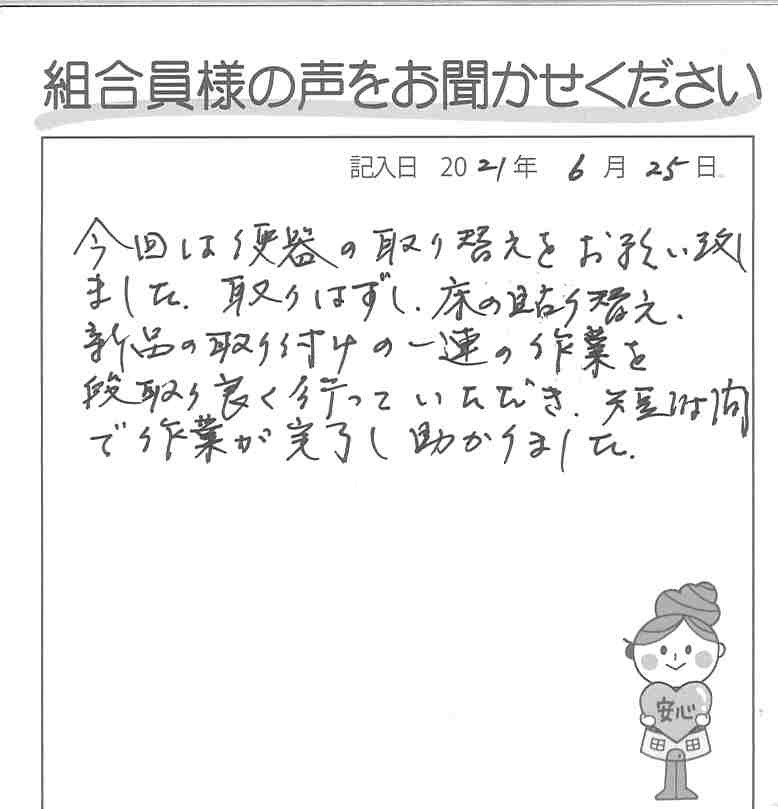 組合員様の声をお聞かせください
記入日 2021年 6月 25日
今回は便器の取り替えをお願い致し
ました。取りはずし、床の貼り替え、
新品の取り付けの一連の作業を
段取り良く行っていただき、短時間
で作業が完了し助かりました。
安心